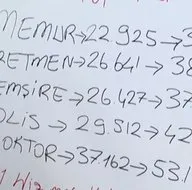 MEMUR→22.925→3
RETMEN→26.641→38
EMŞİRE→26.427→37
OLİS→29.512→42
OKTOR→37.162→53.